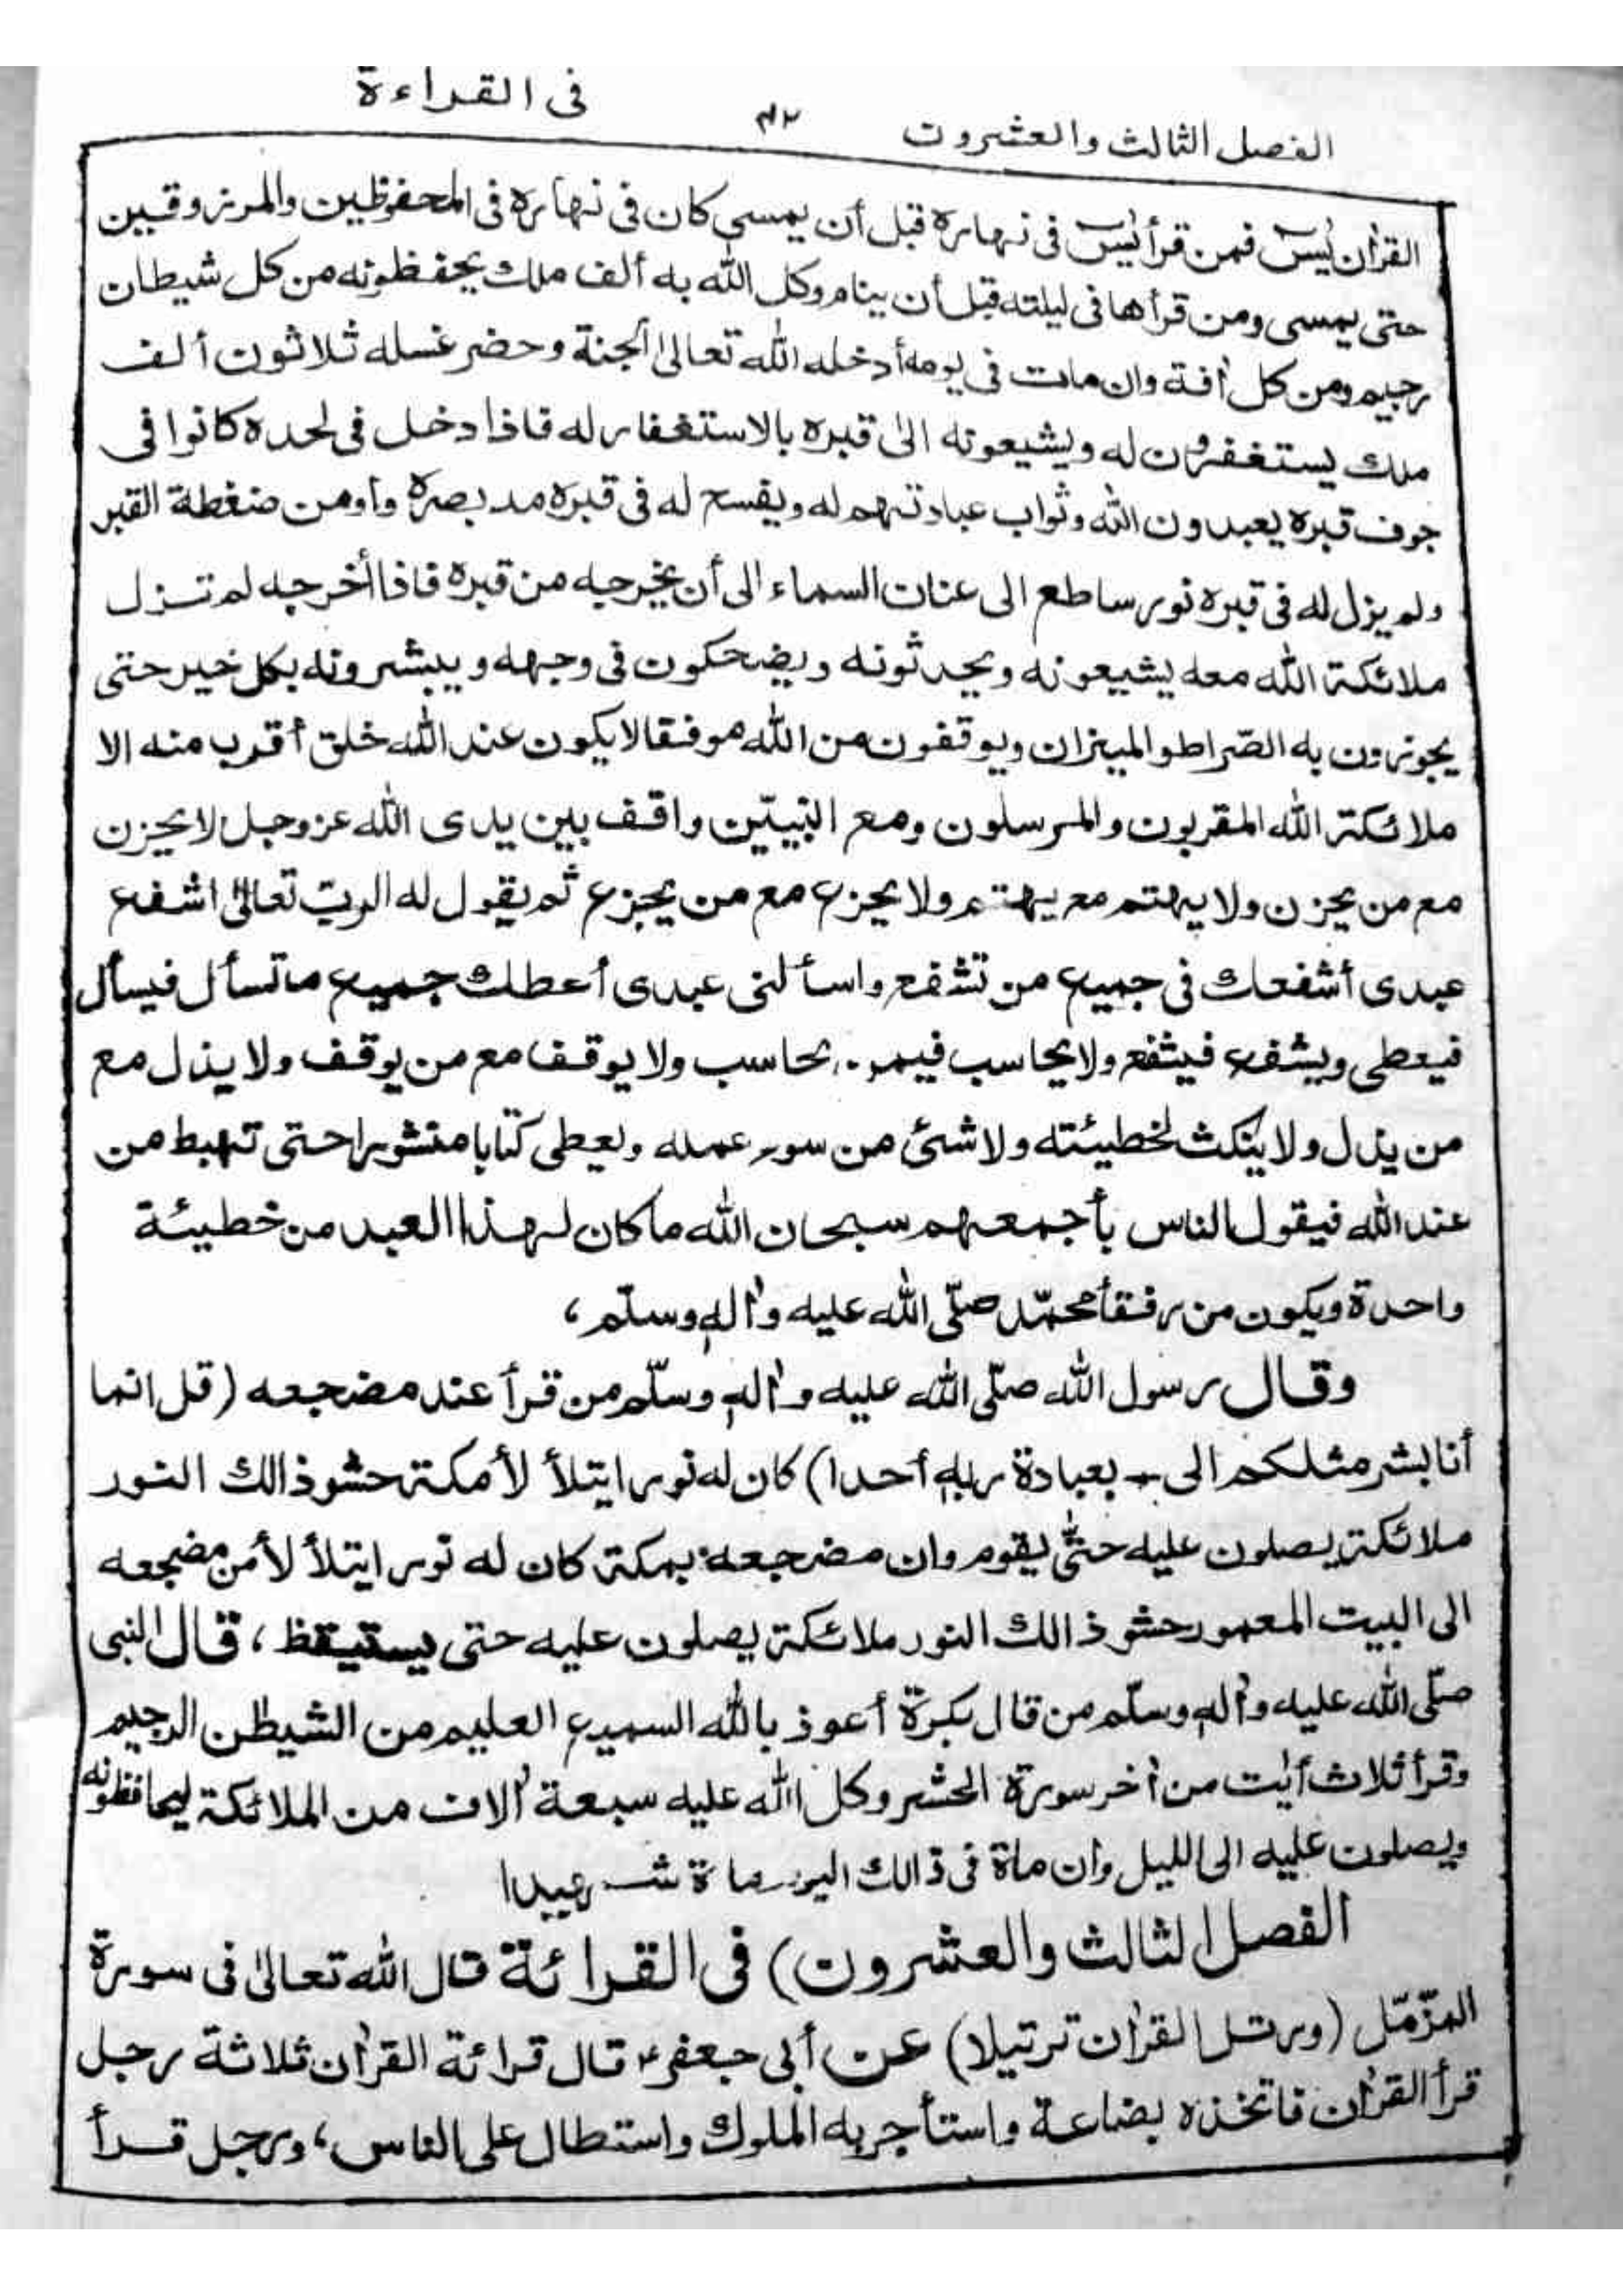 فى القراءة
الفصل الثالث والعشرون ٤٢
القراٰن يٰسٓ فمن قرأ يٰسٓ فى نهاره قبل أن يمسى كان فى نهاره فى المحفوظين والمرزوقين
حتى يمسى ومن قرأها فى ليلته قبل أن ينام وكل الله به ألف ملك يحفظونه من كل شيطان
رجيم ومن كل اٰفة وان مات فى يومه أدخله الله تعالىٰ الجنة وحضر غسله ثلاثون ألف
ملك يستغفرون له ويشيعونه الىٰ قبره بالاستغفار له فاذا دخل فى لحده كانوا فى
جوف قبره يعبدون الله وثواب عبادتهم له ويفسح له فى قبره مد بصره وأومن ضغطة القبر
ولم يزل له فى قبره نور ساطع الى عنان السماء الى أن يخرجه من قبره فاذا أخرجه لم تزل
ملائكة الله معه يشيعونه ويحدثونه ويضحكون فى وجهه ويبشرونه بكل خير حتى
يجوزون به الصّراط والميزان ويوقفون من الله موفقا لا يكون عند الله خلق أقرب منه الا
ملائكة الله المقربون والمرسلون ومع النبيّين واقف بين يدى الله عزوجل لا يحزن
مع من يحزن ولا يهتم مع يهتم ولا يحزع مع من يجزع ثم يقول له الربّ تعالىٰ اشفع
عبدى أشفعك فى جميع من تشفع واسألنى عبدى أعطك جميع ما تسأل فيسأل
فيعطى ويشفع فيشفع ولا يحاسب فيمن يحاسب ولا يوقف مع من يوقف ولا يذل مع
من يذل ولا ينكث لخطيئته ولا شئ من سوء عمله ويعطى كتابا منشورا حتى تهبط من
عند الله فيقول الناس بأجمعهم سبحان الله ما كان لهذا العبد من خطيئة
واحدة ويكون من رفقأ محمّد صلّى الله عليه واٰلهٖ وسلّم،
وقال رسول الله صلّى الله عليه واٰلهٖ وسلّم من قرأ عند مضجعه (قل انما
أنا بشر مثلكم الى - بعبادة ربهٖ أحدا) كان له نور ايتلأ لأ مكة حشو ذالك النور
ملائكة يصلون عليه حتّى يقوم وان مضجعه بمكة كان له نور ايتلأ لأ من مضجعه
الى البيت المعمور حشو ذالك النور ملائكة يصلون عليه حتى يستيقظ، قال النبى
صلّى الله عليه واٰلهٖ وسلّم من قال بكرّة أعوذ بالله السميع العليم من الشيطٰن الرجيم
وقرأ ثلاث أيٰت من اٰخر سورة الحشر وكل الله عليه سبعة اٰلاف من الملائكة يحافظونه
ويصلون عليه الى الليل وان ماة فى ذالك اليوم ماة شهيدا
الفصل الثالث والعشرون) فى القرائة قال الله تعالىٰ فى سورة
المزّمّل (ورتل القراٰن ترتيلا) عن أبى جعفرؑ قال قرائة القراٰن ثلاثة رجل
قرأ القراٰن فاتخذه بضاعة واستأجر به الملوك واستطال على الناس، ورجل قرأ